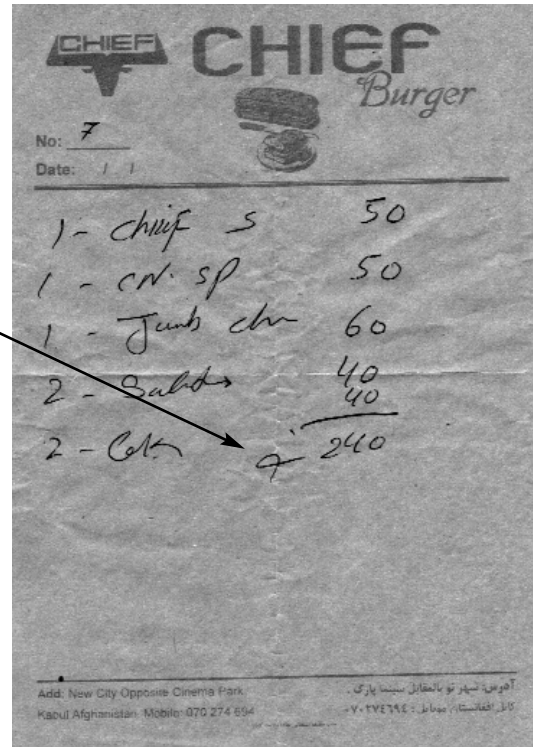 CHIEF CHIEF
Burger
No: 7
Date: / /
1 - chief S 50
1 - CN. SP 50
1 - Jumb 60
2 - Salad 40
40
2 - 240
Add: New City Opposite Cinema Park
Kaoul Afghanistan Mobile: 070 274 694
آدرس: شهر نو بالمقابل سینما پارک .
کابل افغانستان موبایل : ٠٧٠٢٧٤٦٩٤